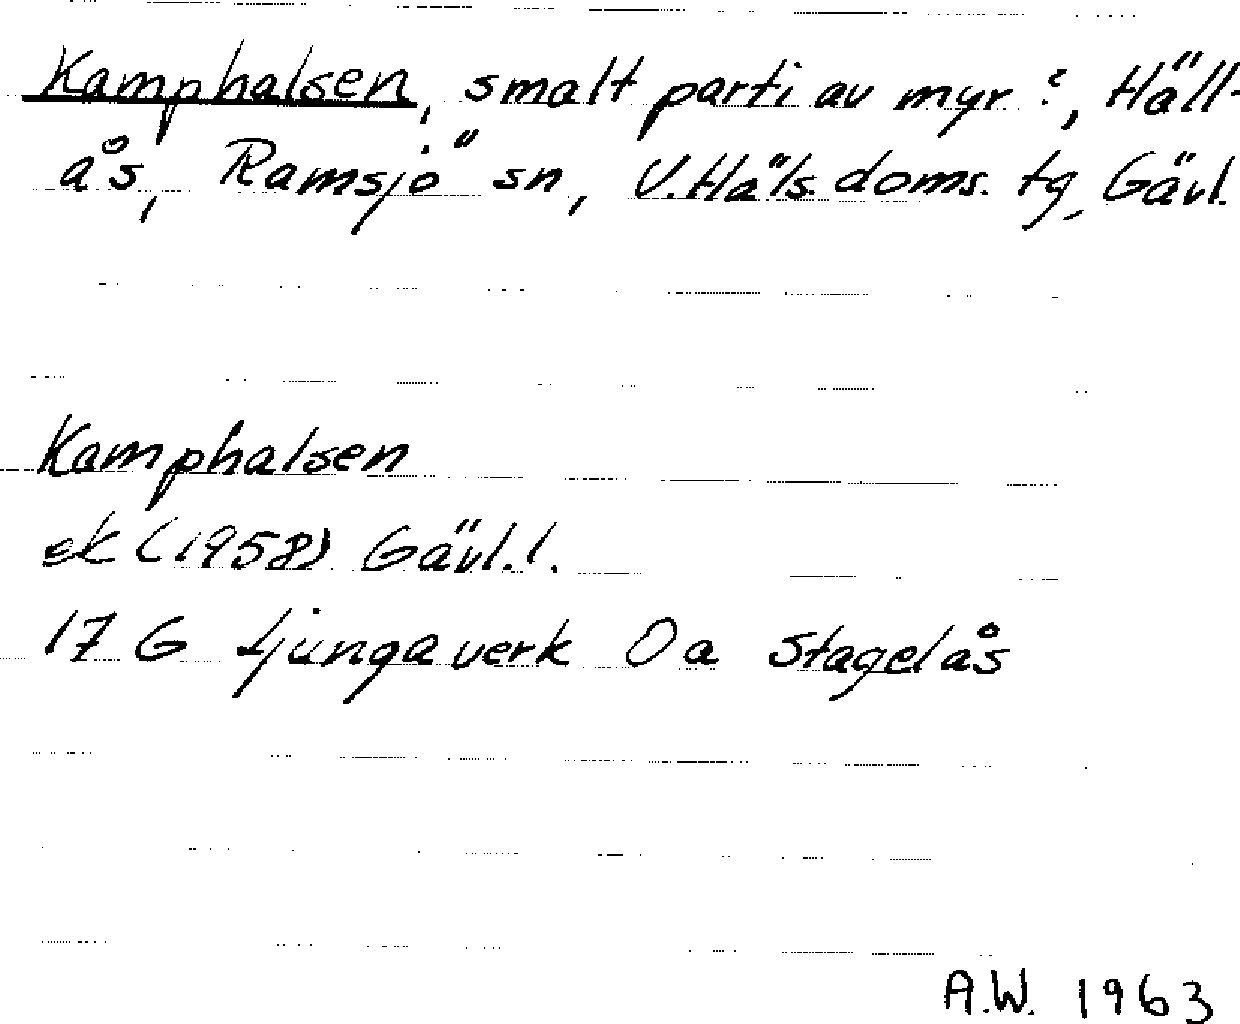 Kamphalsen, smalt parti av myr?, Häll-
ås, Ramsjö sn, V. Häls. doms. tg, Gävl.
Kamphalsen
ek (1958) Gävl. l.
17 G Ljungaverk 0 a Stagelås
A.W. 1963